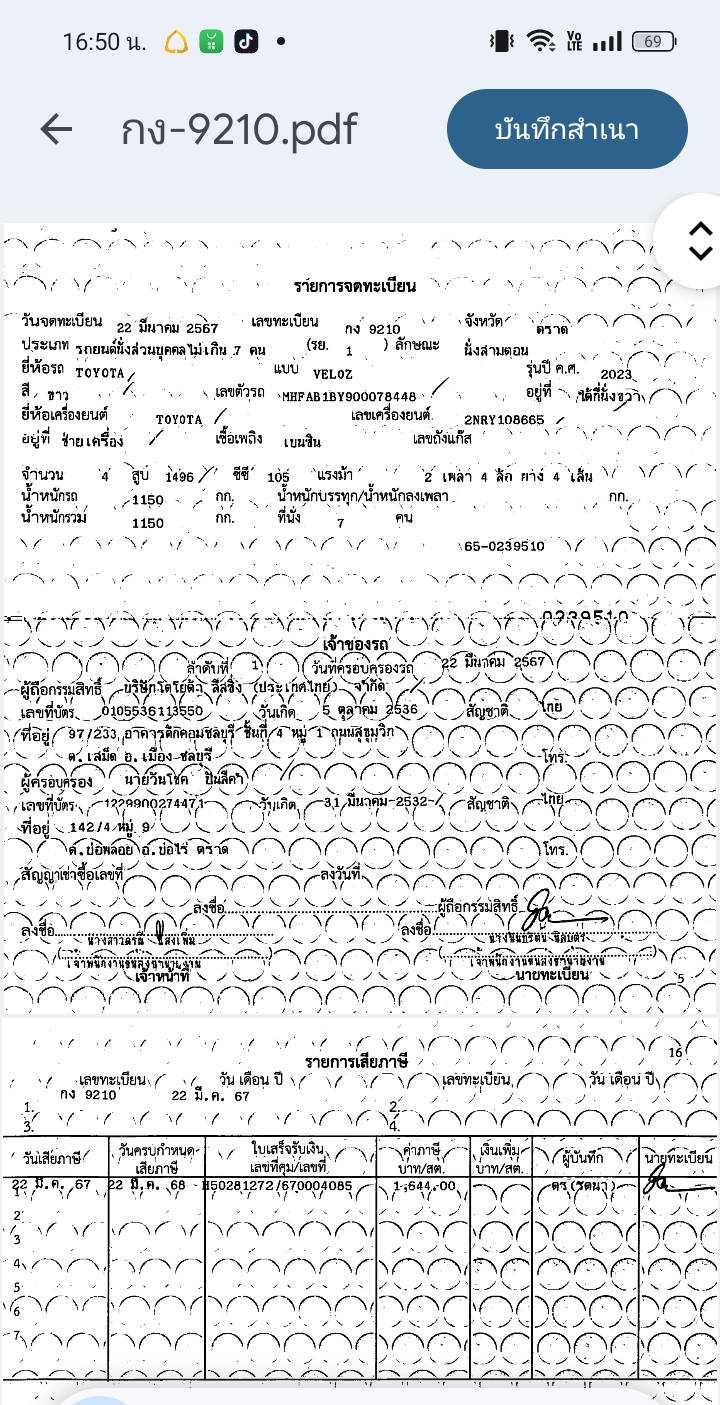 16:50 น.
Vo LTE
69
กง-9210.pdf
บันทึกสำเนา
รายการจดทะเบียน
วันจดทะเบียน 22 มีนาคม 2567 เลขทะเบียน กง 9210 จังหวัด ตราด
ประเภท รถยนต์นั่งส่วนบุคคลไม่เกิน 7 คน (รย. 1 ) ลักษณะ นั่งสามตอน
ยี่ห้อรถ TOYOTA แบบ VELOZ รุ่นปี ค.ศ. 2023
สี ขาว เลขตัวรถ MHFAB1BY900078448 อยู่ที่ ใต้ที่นั่งขวา
ยี่ห้อเครื่องยนต์ TOYOTA เลขเครื่องยนต์ 2NRY108665
อยู่ที่ ซ้ายเครื่อง เชื้อเพลิง เบนซิน เลขถังแก๊ส
จำนวน 4 สูบ 1496 ซีซี 105 แรงม้า 2 เพลา 4 ล้อ ยาง 4 เส้น
น้ำหนักรถ 1150 กก. น้ำหนักบรรทุก/น้ำหนักลงเพลา กก.
น้ำหนักรวม 1150 กก. ที่นั่ง 7 คน
65-0239510
0239510
เจ้าของรถ
ลำดับที่ 1 วันที่ครอบครองรถ 22 มีนาคม 2567
ผู้ถือกรรมสิทธิ์ บริษัทโตโยต้า ลีสซิ่ง (ประเทศไทย) จำกัด
เลขที่บัตร 0105536113550 วันเกิด 5 ตุลาคม 2536 สัญชาติ ไทย
ที่อยู่ 97/233 อาคารตึกคอมชลบุรี ชั้นที่ 4 หมู่ 1 ถนนสุขุมวิท
ต.เสม็ด อ.เมือง ชลบุรี โทร.
ผู้ครอบครอง นายวันโชค
เลขที่บัตร 1229900274471 วันเกิด 31 มีนาคม 2532 สัญชาติ ไทย
ที่อยู่ 142/4 หมู่ 9
ต.บ่อพลอย อ.บ่อไร่ ตราด โทร.
สัญญาเช่าซื้อเลขที่ ลงวันที่
ลงชื่อ ผู้ถือกรรมสิทธิ์
ลงชื่อ ลงชื่อ
เจ้าพนักงานขนส่งชำนาญงาน เจ้าพนักงานขนส่งชำนาญงาน
เจ้าหน้าที่ นายทะเบียน
5
16
รายการเสียภาษี
เลขทะเบียน วัน เดือน ปี เลขทะเบียน วัน เดือน ปี
1. กง 9210 22 มี.ค. 67 2.
3. 4.
วันเสียภาษี วันครบกำหนดเสียภาษี ใบเสร็จรับเงิน เลขที่คุม/เลขที่ ค่าภาษี บาท/สต. เงินเพิ่ม บาท/สต. ผู้บันทึก นายทะเบียน
1 22 มี.ค. 67 22 มี.ค. 68 H50281272/670004085 1,644.00 ตร (รตนา)
2
3
4
5
6
7